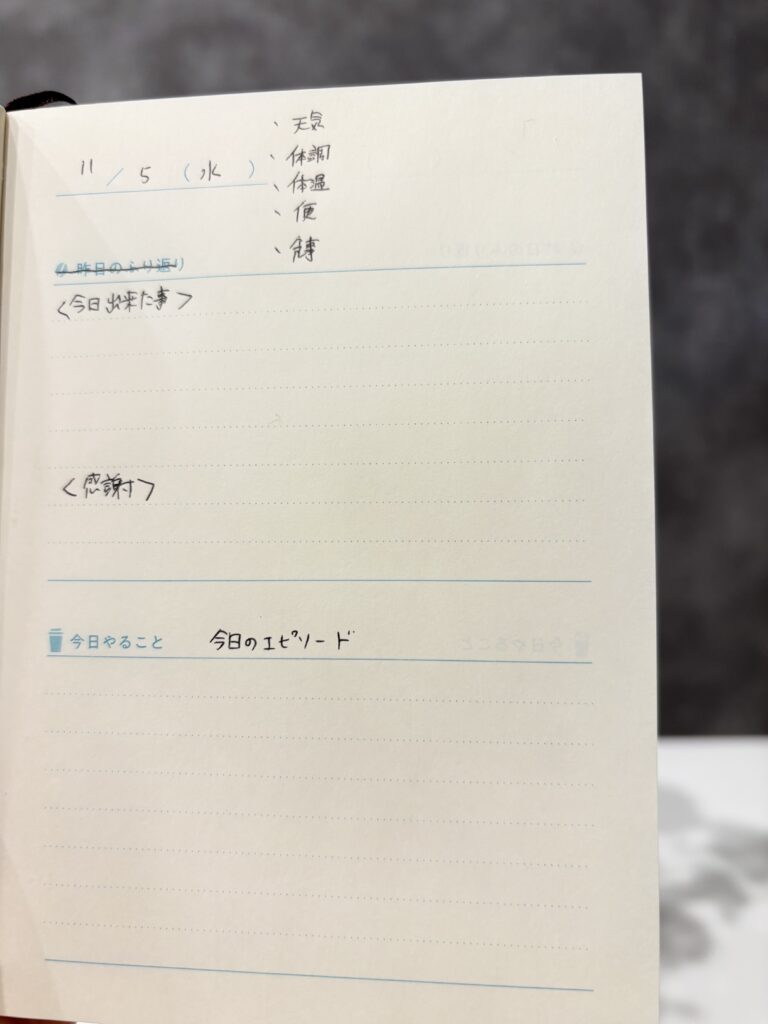 11 / 5 (水)
、天気
、体調
、体温
、便
、食事
昨日のふり返り
<今日出来た事>
<感謝>
今日やること 今日のエピソード